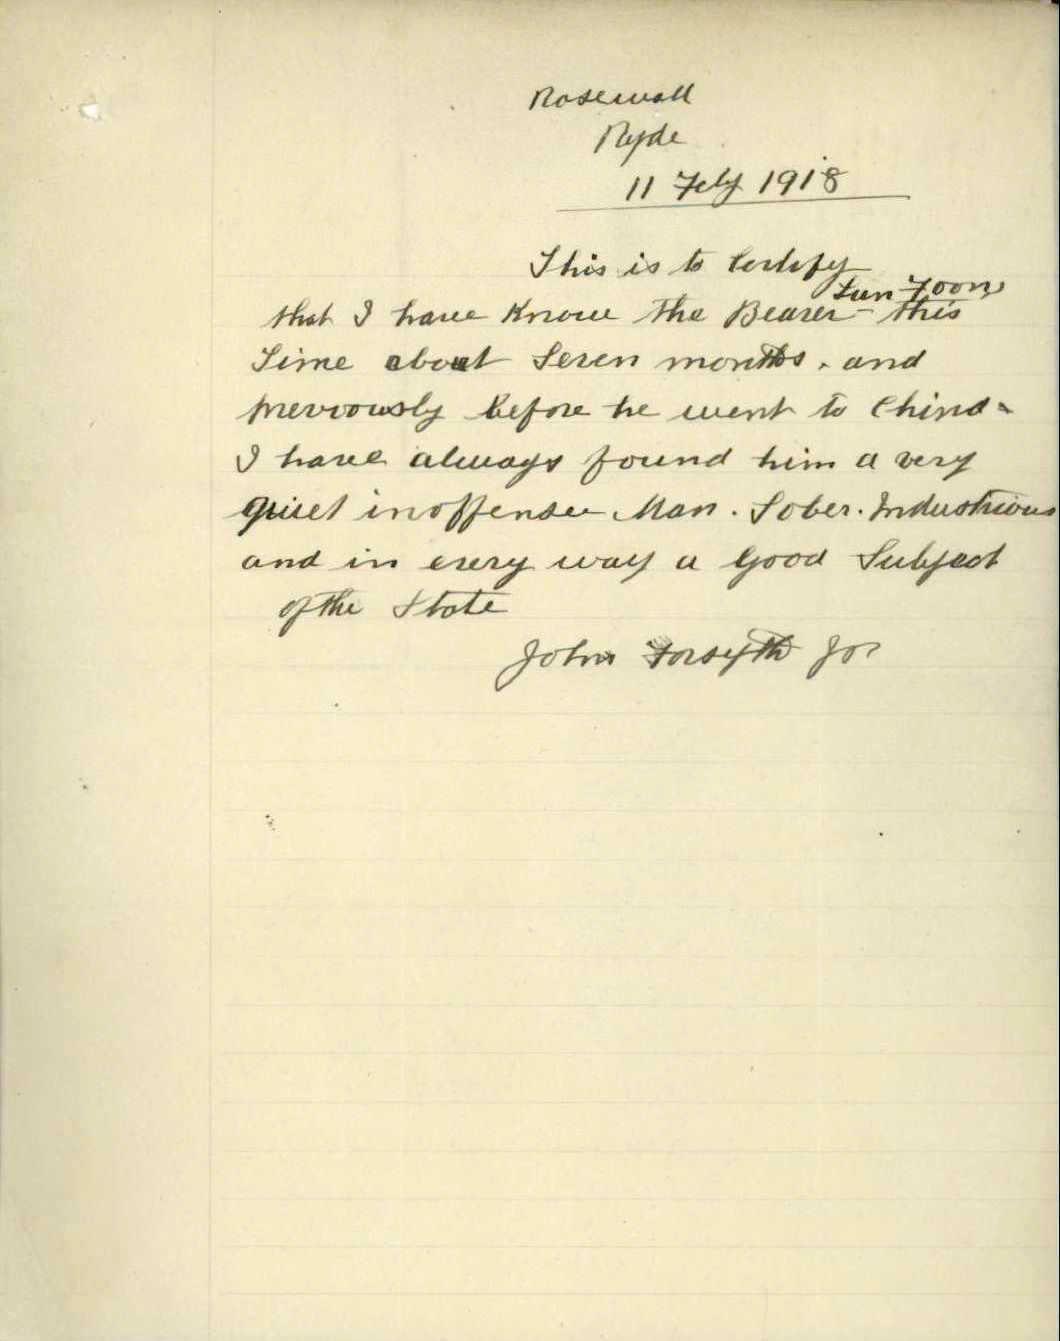 Rosewall
Ryde
11 Feby 1918
This is to Certify
Sun Foon
that I have Know the Bearer - this
Time about Seven months. and
previously before he went to China
I have always found him a very
quiet inoffensive Man. Sober. Industrious
and in every way a Good Subject
of the State
John Forsyth JP